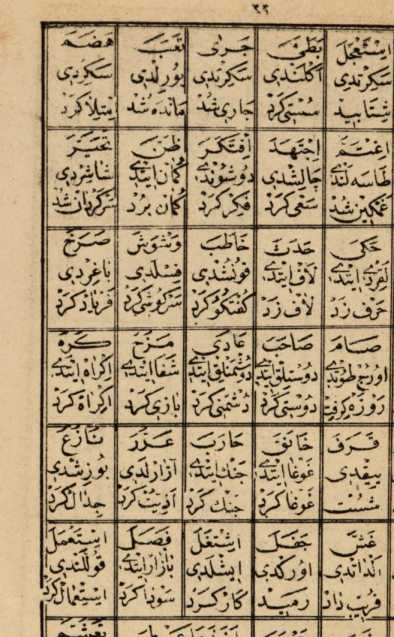 ٢٢
استعجل بطئ جرى تعب هضم
سكرتدى اكلندى سكرتدى يورلدى سكردى
شتابيد سستى كرد جارى شد مانده شد امتلا كرد
اغتم اجتهد افتكر ظن تحير
طاسه لندى جالشدى دوشوندى كمان ايتدى شاشردى
غمكين شد سعى كرد فكر كرد كمان برد سركردان شد
حكى حدث خاطب وشوش صرخ
لقردى ايتدى لاف ايتدى قونشدى فسلدى باغردى
حرف زد لاف زد كفتكو كرد سركوشى كرد فرياد كرد
صام صاحب عادى مزح كره
اورج طوتدى دوستلق ايتدى دشمنلق ايتدى شقا ايتدى اكراه ايتدى
روزه كرفت دوستى كرد دشمنى كرد بازى كرد اكراه كرد
قرف خانق حارب عزر نازع
بيقدى غوغا ايتدى جنك ايتدى آزارلدى بوزشدى
شست غوغا كرد جنك كرد اذيت كرد جدال كرد
غش جفل اشتغل فصل استعمل
الداتدى اوركدى ايشلدى بازار ايتدى قوللندى
فريب داد رميد كار كرد سودا كرد استعمال كرد